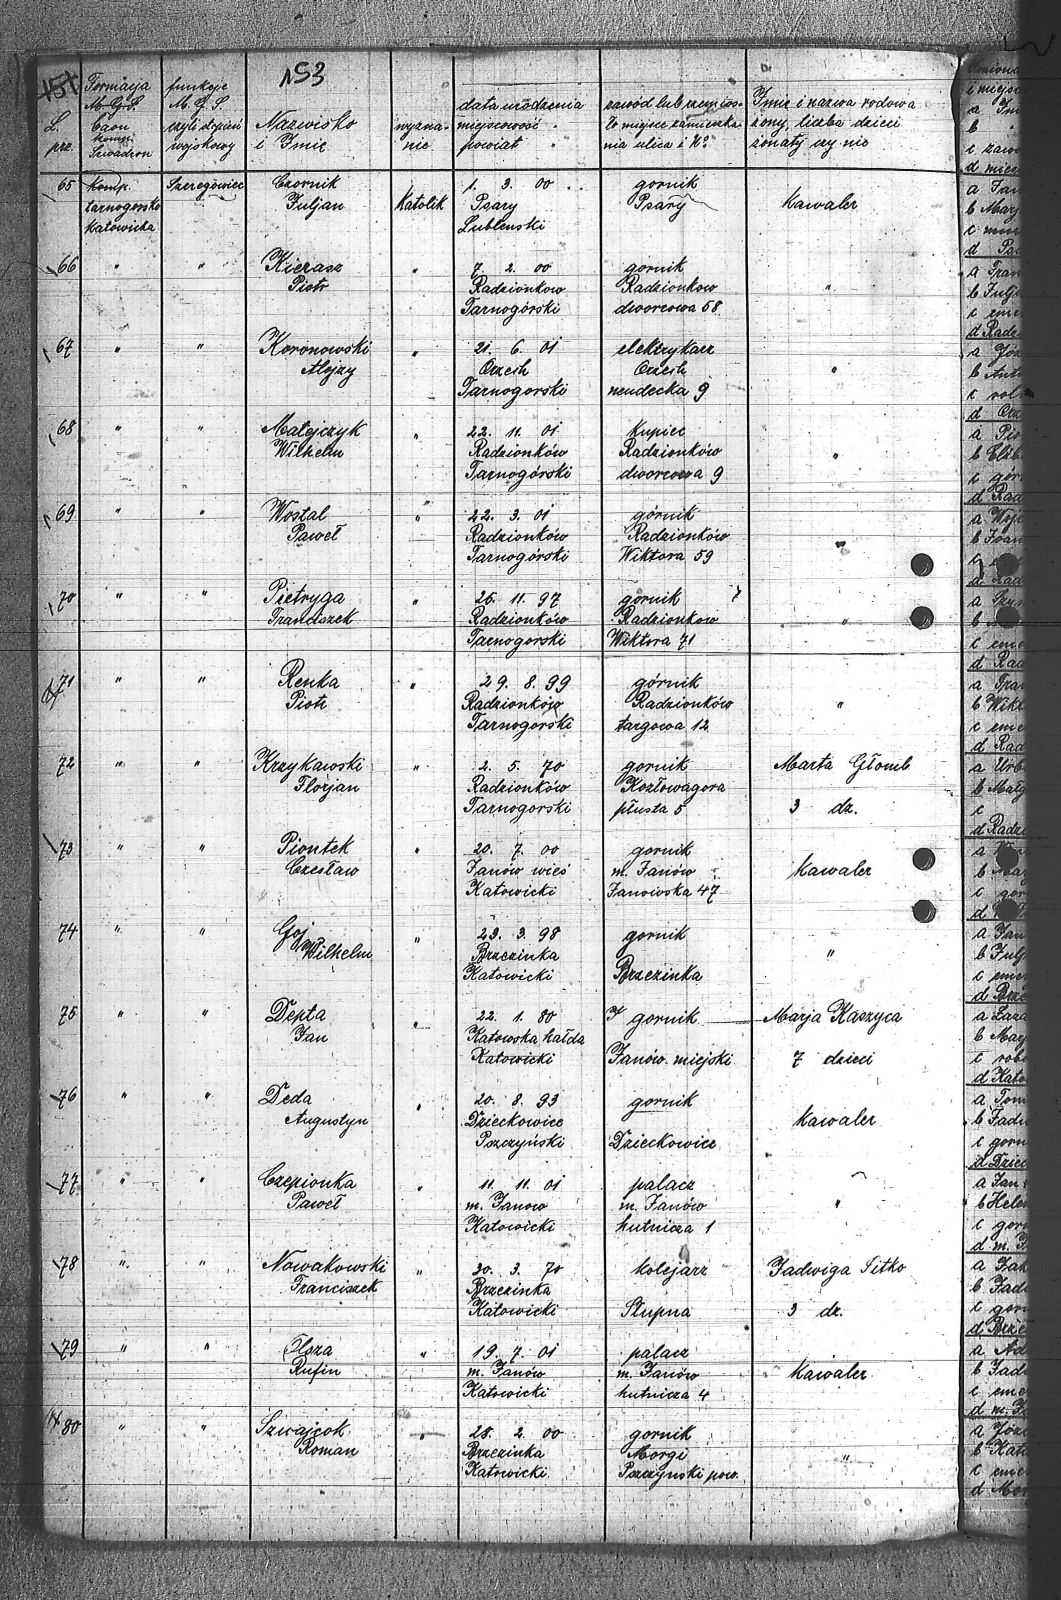 153
L prz.
Formacja M.G.S. baon komp. Szwadron
funkcje M.G.S. czyli stopień wojskowy
Nazwisko i Imie
wyzna- nie
data urodzenia miejscowość powiat
zawód lub rzemios- ło miejsce zamieszka nia ulica i No
Imie i nazwa rodowa żony, liczba dzieci żonaty czy nie
65 Komp. Szeregowiec Czornik 1. 3. 00 gornik
tarnogorsko Juljan Katolik Psary Psary Kawaler
Katowicka Lublenski
66 " " Kierasz " 7. 2. 00 gornik
Piotr Radzionkow Radzionkow "
Tarnogórski dworcowa 58
67 " " Koronowski " 21. 6. 01 elektrykarz
Alojzy Orzech Orzech "
Tarnogorski neudecka 9
68 " " Matejczyk " 22. 11. 01 Kupiec
Wilhelm Radzionków Radzionków "
Tarnogórski dworcowa 9
69 " " Wostal " 22. 3. 01 górnik
Paweł Radzionków Radzionków "
Tarnogórski Wiktora 59
70 " " Pietryga " 26. 11. 97 gornik
Franciszek Radzionków Radzionkow "
Tarnogorski Wiktora 71
71 " " Renka " 29. 8. 99 górnik
Piotr Radzionków Radzionków "
Tarnogorski targowa 12
72 " " Krzykawski " 2. 5. 70 gornik Marta Głomb
Florjan Radzionków Kozłowagora
Tarnogorski płusta 5 3 dz.
73 " " Piontek " 20. 7. 00 gornik
Czesław Janów wieś m. Janów Kawaler
Katowicki Janowska 47
74 " " Goj " 23. 3. 98 gornik
Wilhelm Brzezinka "
Katowicki Brzezinka
75 " " Depta " 22. 1. 80 gornik Marja Kaszyca
Jan Katowska hałda
Katowicki Janów miejski 7 dzieci
76 " " Deda " 20. 8. 93 gornik
Augustyn Dzieckowice Kawaler
Pszczyński Dzieckowice
77 " " Czepionka " 11. 11. 01 palacz
Paweł m. Janow m. Janów "
Katowicki hutnicza 1
78 " " Nowakowski " 30. 3. 70 kolejarz Jadwiga Titko
Franciszek Brzezinka
Katowicki Słupna 3 dz.
79 " " " 19. 7. 01 palacz
Rufin m. Janów m. Janów Kawaler
Katowicki hutnicza 4
80 " " Szwajcok " 28. 2. 00 gornik
Roman Brzezinka Morgi "
Katowicki Pszczynski pow.